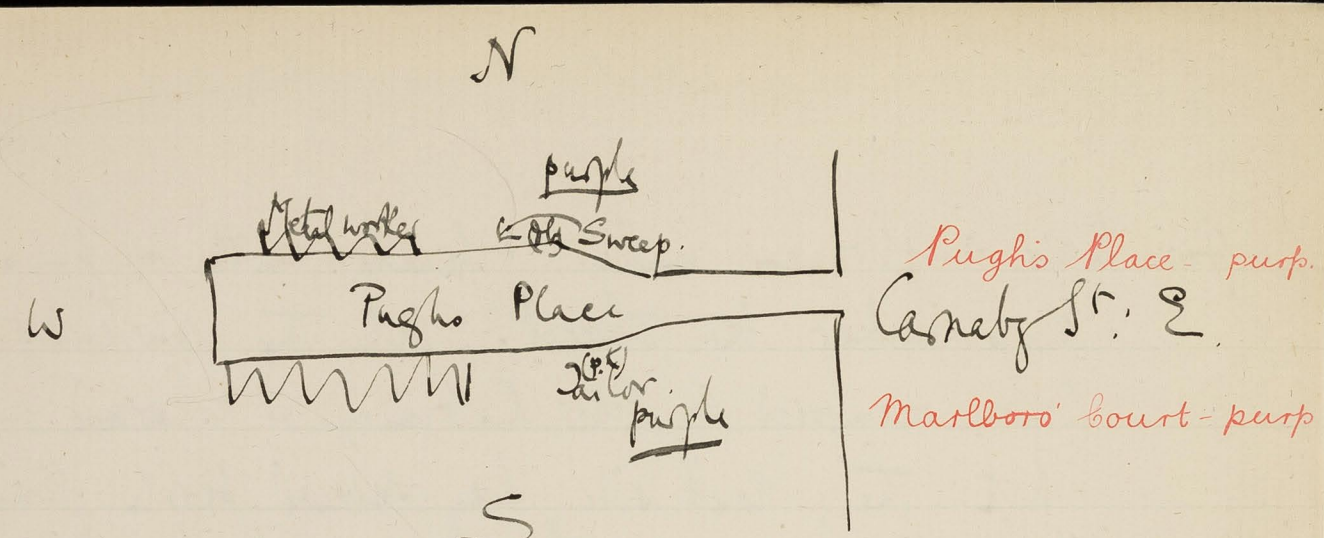 N
purple
Metal worker
Old Sweep.
Pughs Place - purp.
W
Pughs Place
Carnaby St. E.
(p.k)
Tailor.
purple
Marlboro' Court - purp
S